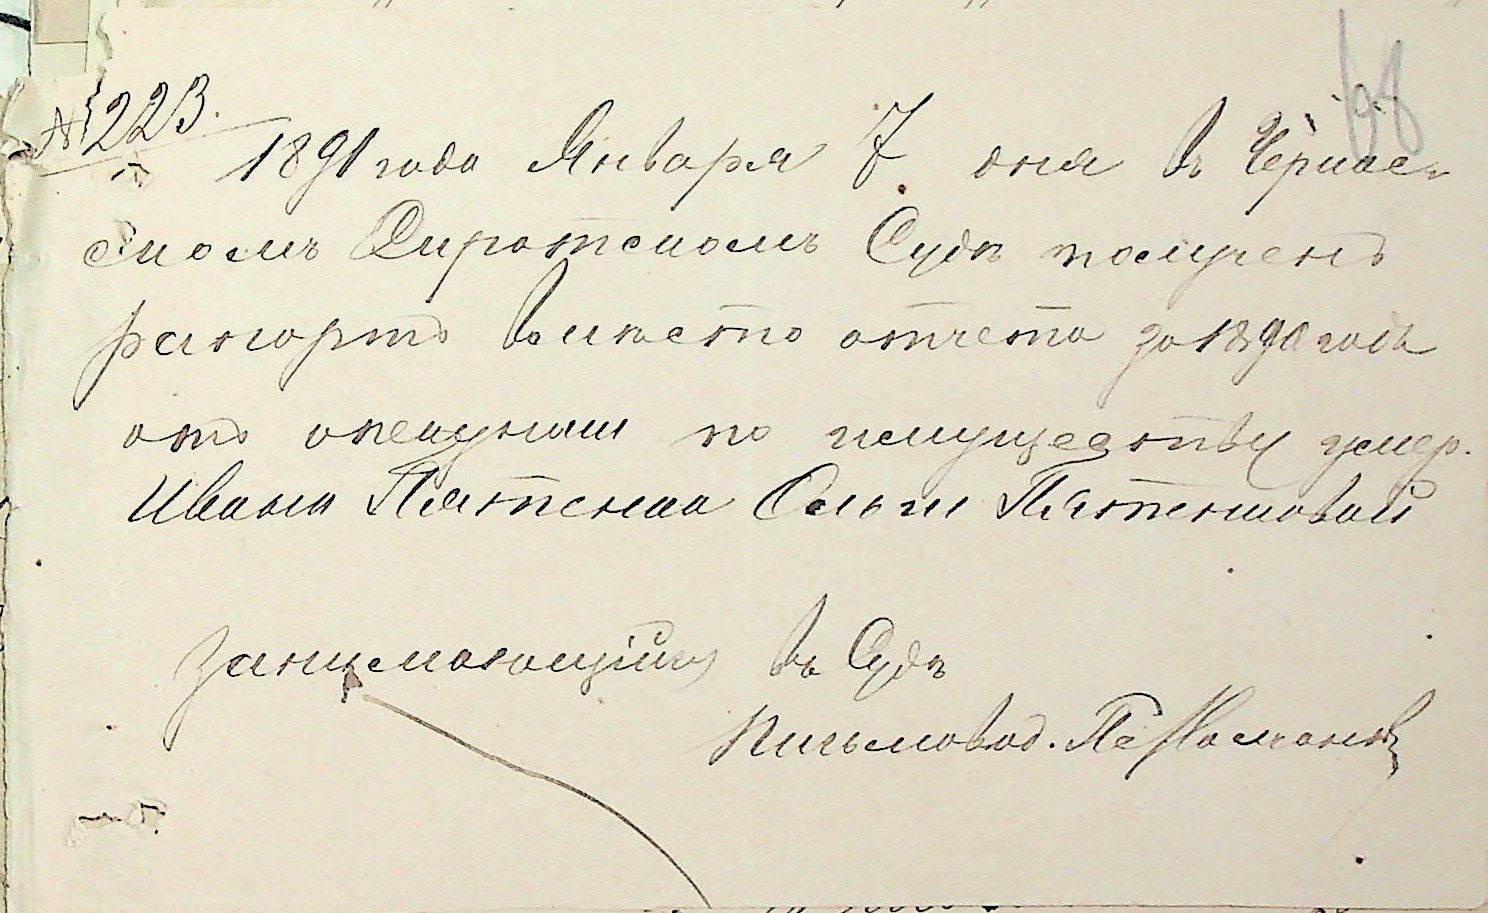 № 223.
68
1891 года Января 7 дня въ Черкас-
скомъ Сиротскомъ Судѣ полученъ
рапортъ вмѣсто отчета за 1890 годъ
отъ опекунши по имуществу умер.
Ивана Пятенка Ольги Пятенковой
Занимающійся въ Судѣ
Письмовод.